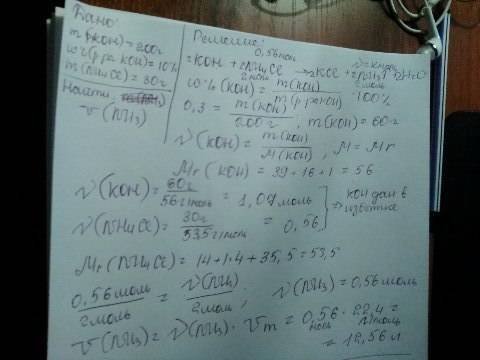 Дано:
m р-р(KOH) = 200г
w% (р-ра KOH) = 10%
m(NH₄Cl) = 30г
Найти:
V(NH₃)
Решение:
0,56 моль
KOH + NH₄Cl → KCl + NH₃↑ + H₂O
2 моль
2 моль
w% (KOH) = m(KOH) / m(р-ра KOH) · 100%
0,3 = m(KOH) / 200г , m(KOH) = 60г
ν(KOH) = m(KOH) / M(KOH) , M = Mr
Mr(KOH) = 39 + 16 + 1 = 56
ν(KOH) = 60г / 56г/моль = 1,07 моль
ν(NH₄Cl) = 30г / 53,5г/моль = 0,56
⇒ KOH дан в избытке
Mr(NH₄Cl) = 14 + 1·4 + 35,5 = 53,5
0,56 моль / 2 моль = ν(NH₃) / 2 моль ; ν(NH₃) = 0,56 моль
V(NH₃) = ν(NH₃) · Vm = 0,56 моль · 22,4 л/моль =
= 12,56 л